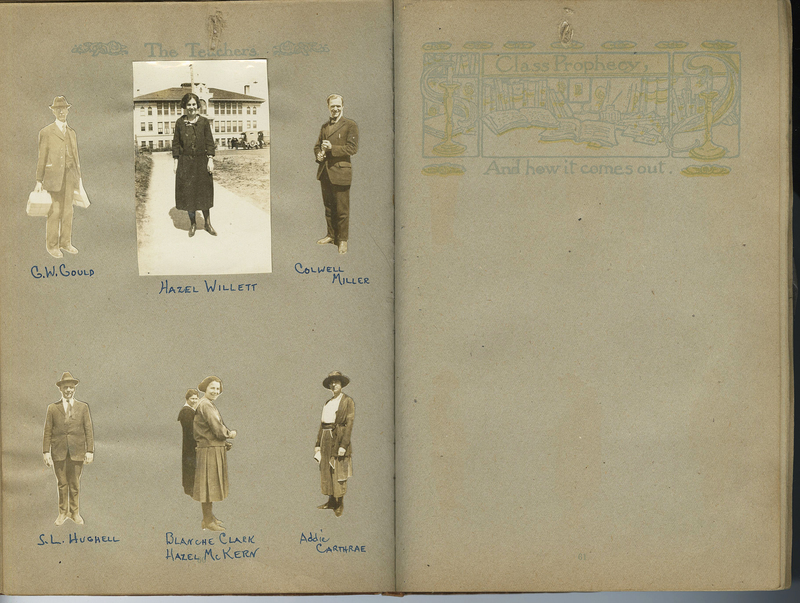 The Teachers
G.W. GOULD
HAZEL WILLETT
COLWELL
MILLER
S.L. HUGHELL
BLANCHE CLARK
HAZEL MCKERN
Addie
CARTHRAE
Class Prophecy,
And how it comes out.
61